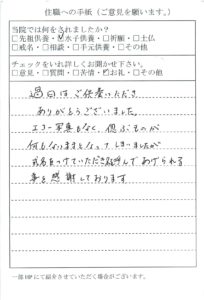 住職への手紙（ご意見を願います。）
当院では何をされましたか？
□先祖供養・☑水子供養・□祈願・□土仏
□戒名・□相談・□手元供養・□その他
チェックをいれ詳しくお聞かせ下さい。
□意見・□質問・□苦情・☑お礼・□その他
過日は ご供養いただき
ありがとうございました。
エコー写真もなく、偲ぶものが
何もないままとなってしまいましたが
戒名をつけていただき、呼んであげられる
事を感謝しております
一部HPにて紹介させていただく場合がございます。